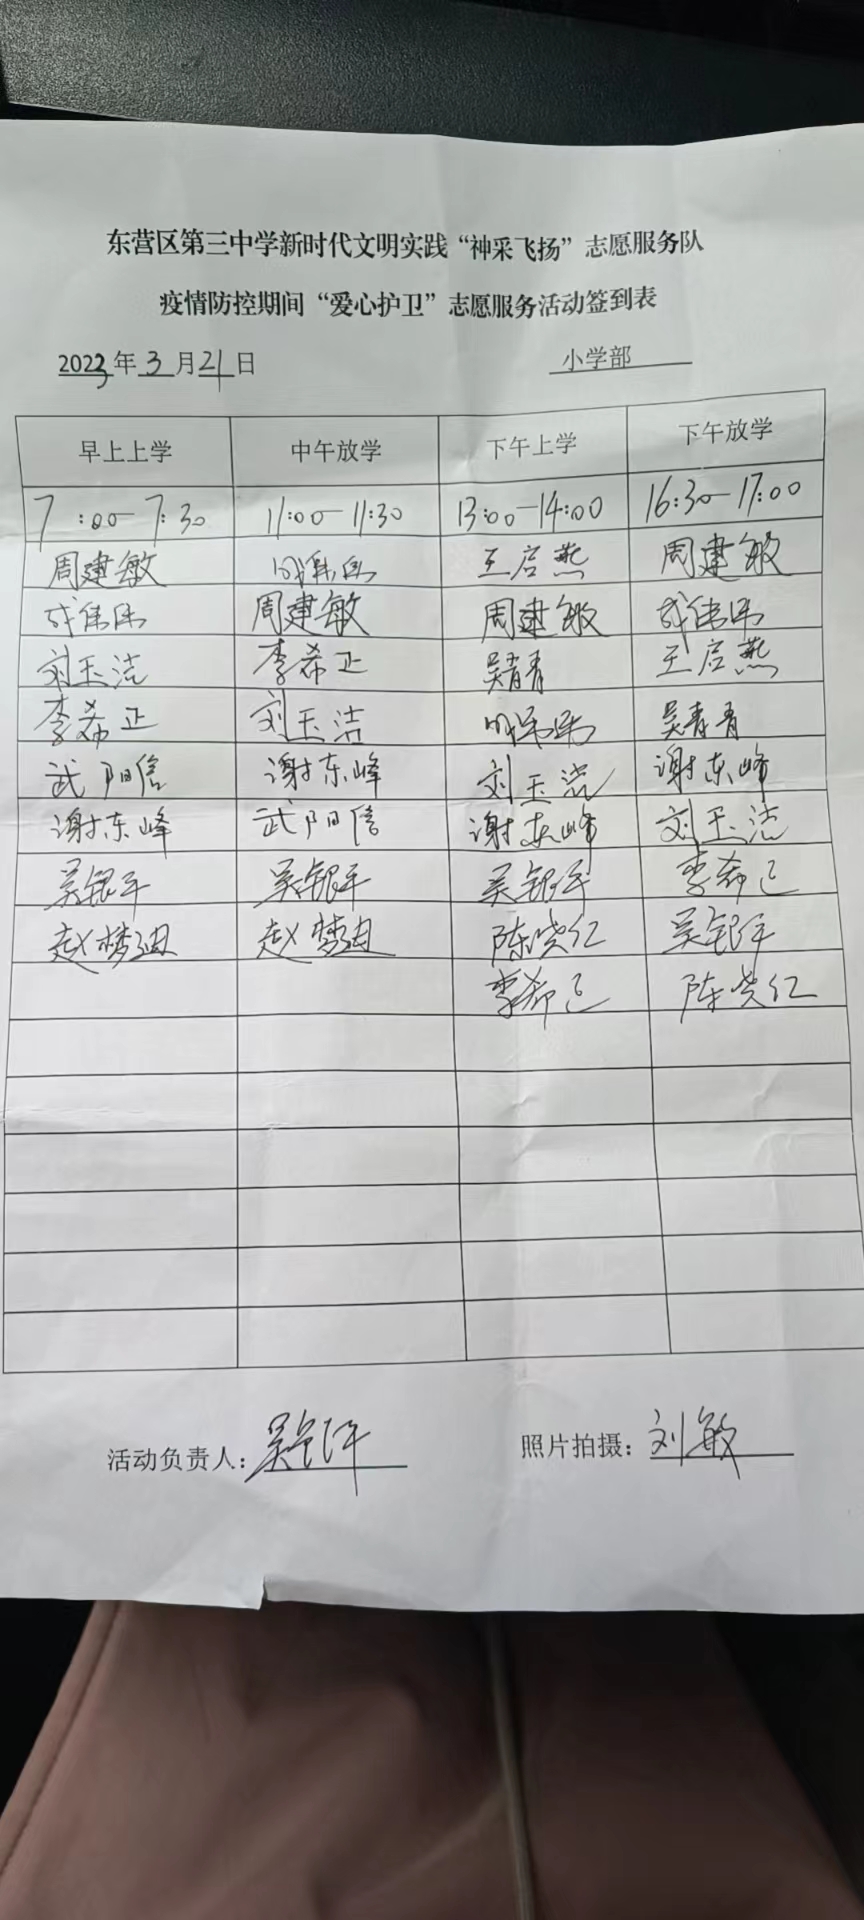 东营区第三中学新时代文明实践“神采飞扬”志愿服务队
疫情防控期间“爱心护卫”志愿服务活动签到表
2023年3月21日 小学部
早上上学 中午放学 下午上学 下午放学
7:00-7:30 11:00-11:30 13:00-14:00 16:30-17:00
周建敏 成伟伟 王启燕 周建敏
成伟伟 周建敏 周建敏 成伟伟
刘玉洁 李希正 吴青青 王启燕
李希正 刘玉洁 成伟伟 吴青青
武阳信 谢东峰 刘玉洁 谢东峰
谢东峰 武阳信 谢东峰 刘玉洁
吴银平 吴银平 吴银平 李希正
赵梦迪 赵梦迪 陈晓红 吴银平
李希正 陈晓红
活动负责人：吴银平 照片拍摄：刘敏